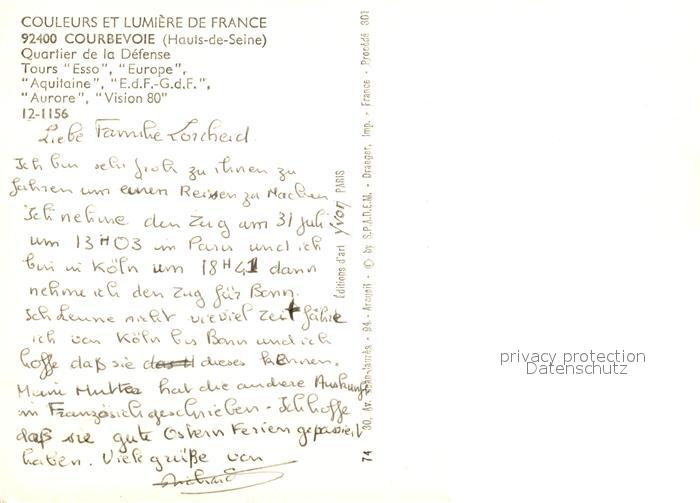 COULEURS ET LUMIÈRE DE FRANCE
92400 COURBEVOIE (Hauts-de-Seine)
Quartier de la Défense
Tours "Esso", "Europe",
"Aquitaine", "E.d.F.-G.d.F.",
"Aurore", "Vision 80"
12-1156
Liebe Familie Lorcheid
Ich bin sehr froh zu ihnen zu
fahren um einen Reisen zu Machen
Ich nehme den Zug am 31 juli
um 13H03 in Paris und ich
bin in Köln um 18H41 dann
nehme ich den Zug für Bonn.
Ich kenne nicht vieviel Zeit fähre
ich von Köln bis Bonn und ich
hoffe daß sie dieses kennen.
Meine Mutter hat die andere Auskunft
in Französich geschrieben - Ich hoffe
daß sie gute Ostern Ferien gepassiert
haben. Viele grüße von
Richard
Éditions d'art Yvon PARIS
74 30, Av. Jean-Jaurès - 94 - Arcueil - © by S.P.A.D.E.M. - Draeger, Imp. - France - Procédé 301
privacy protection
Datenschutz